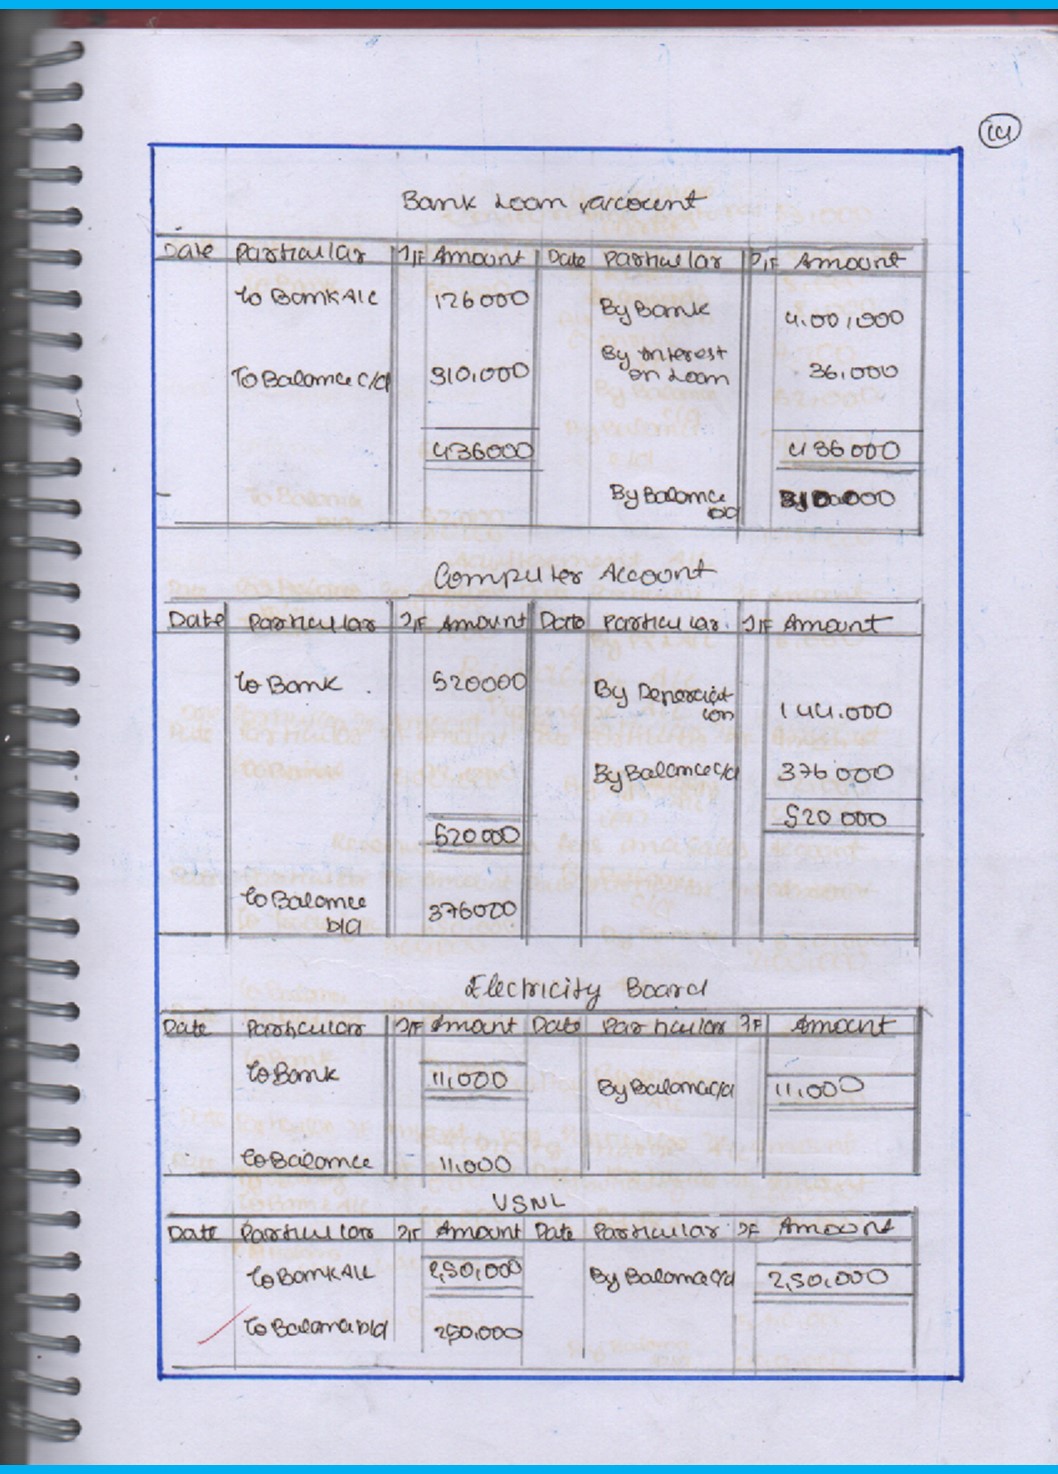 14
Bank Loan Account
Date Particular J/F Amount Date Particular J/F Amount
To Bank A/c 126000 By Bank 4,00,000
To Balance c/d 310,000 By Interest
on Loan 36,000
436000 436000
By Balance
b/d 310000
Computer Account
Date Particular J/F Amount Date Particular J/F Amount
To Bank 520000 By Depreciat
ion 144,000
By Balance c/d 376000
520000 520000
To Balance
b/d 376000
Electricity Board
Date Particular J/F Amount Date Particular J/F Amount
To Bank 11,000 By Balance c/d 11,000
To Balance 11,000
VSNL
Date Particular J/F Amount Date Particular J/F Amount
To Bank A/c 2,50,000 By Balance c/d 2,50,000
To Balance b/d 250,000